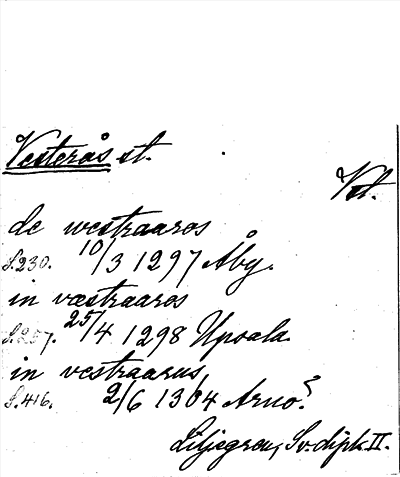 Vesterås st.
Vst.
de westraaros
S.230. 10/3 1297 Åby.
in væstraaros
S.257. 25/4 1298 Upsala.
in vestraarus,
S.416. 2/6 1304 Arno?
Liljegren, Sv. dipl. II.